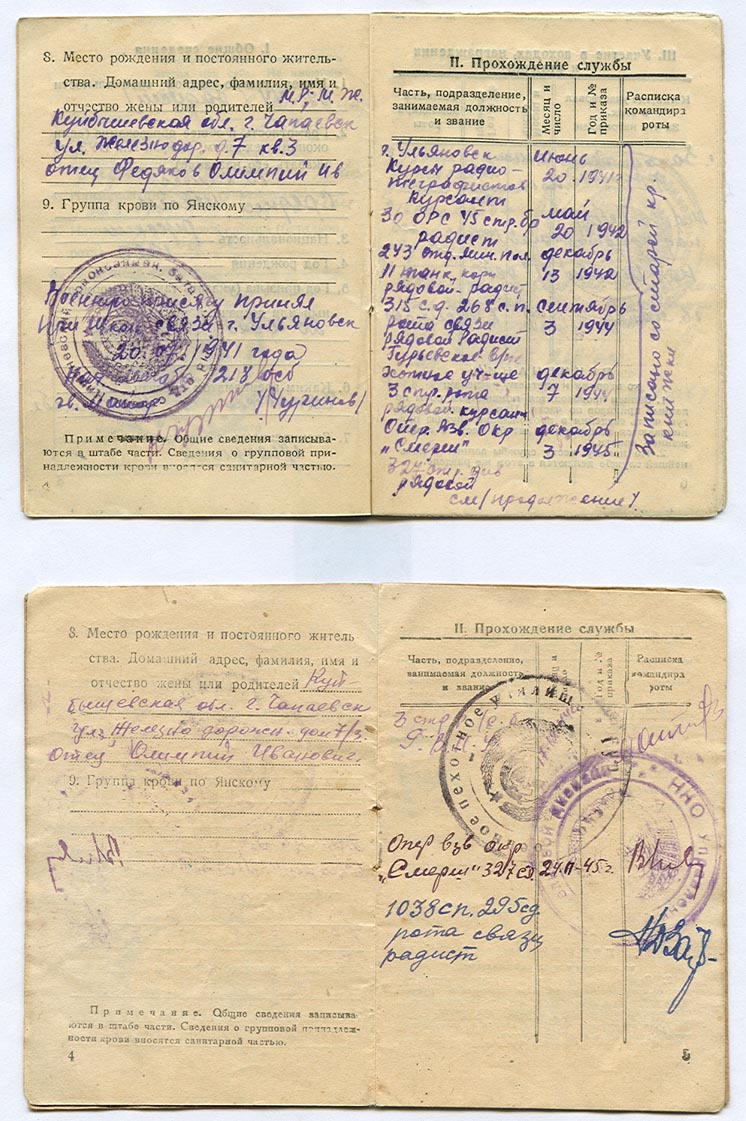 8. Место рождения и постоянного житель-
ства. Домашний адрес, фамилия, имя и
отчество жены или родителей М.Р. и М.Ж.
Куйбышевская обл. г. Чапаевск
ул. Железнодор. д. 7 кв. 3
отец Федяков Олимпий Ив
9. Группа крови по Янскому
Военную присягу принял
при школе связи г. Ульяновск
1941 года
/Чугинов/
Примечание. Общие сведения записыва-
ются в штабе части. Сведения о групповой при-
надлежности крови вносятся санитарной частью.
4
II. Прохождение службы
Часть, подразделение, занимаемая должность и звание
Месяц и число
Год и № приказа
Расписка командира роты
г. Ульяновск июнь
Курсы радио- 20 1941
телеграфистов
курсант
30 ОРС 45 стр. бр май
радист 20 1942
243 отд. мин. пол. декабрь
11 танк. корп 13 1942
рядовой-радист
315 с.д. 268 с.п. сентябрь
рота связи 3 1944
рядовой Радист
Гурьевское пехотное уч-ще декабрь
3 стр. рота 7 1944
рядовой курсант
Опер. Взв. Окр декабрь
„Смерш" 3 1945
327 стр. див
рядовой
см/продолжение/
Записано со старой кр. книжки
8. Место рождения и постоянного житель
ства. Домашний адрес, фамилия, имя и
отчество жены или родителей Куй-
бышевская обл. г. Чапаевск
ул. Железно дорожн. дом 7/3
отец Олимпий Иванович.
9. Группа крови по Янскому
Примечание. Общие сведения записыва-
ются в штабе части. Сведения о групповой принадлеж-
ности крови вносятся санитарной частью.
4
II. Прохождение службы
Часть, подразделение, занимаемая должность и звание
Год и №
Расписка командира роты
3 стр.
Г.В.П.У.
Опер взв окр
„Смерш" 327 сд. 24.II-45 г.
1038 сп. 295 сд
рота связи
радист
5